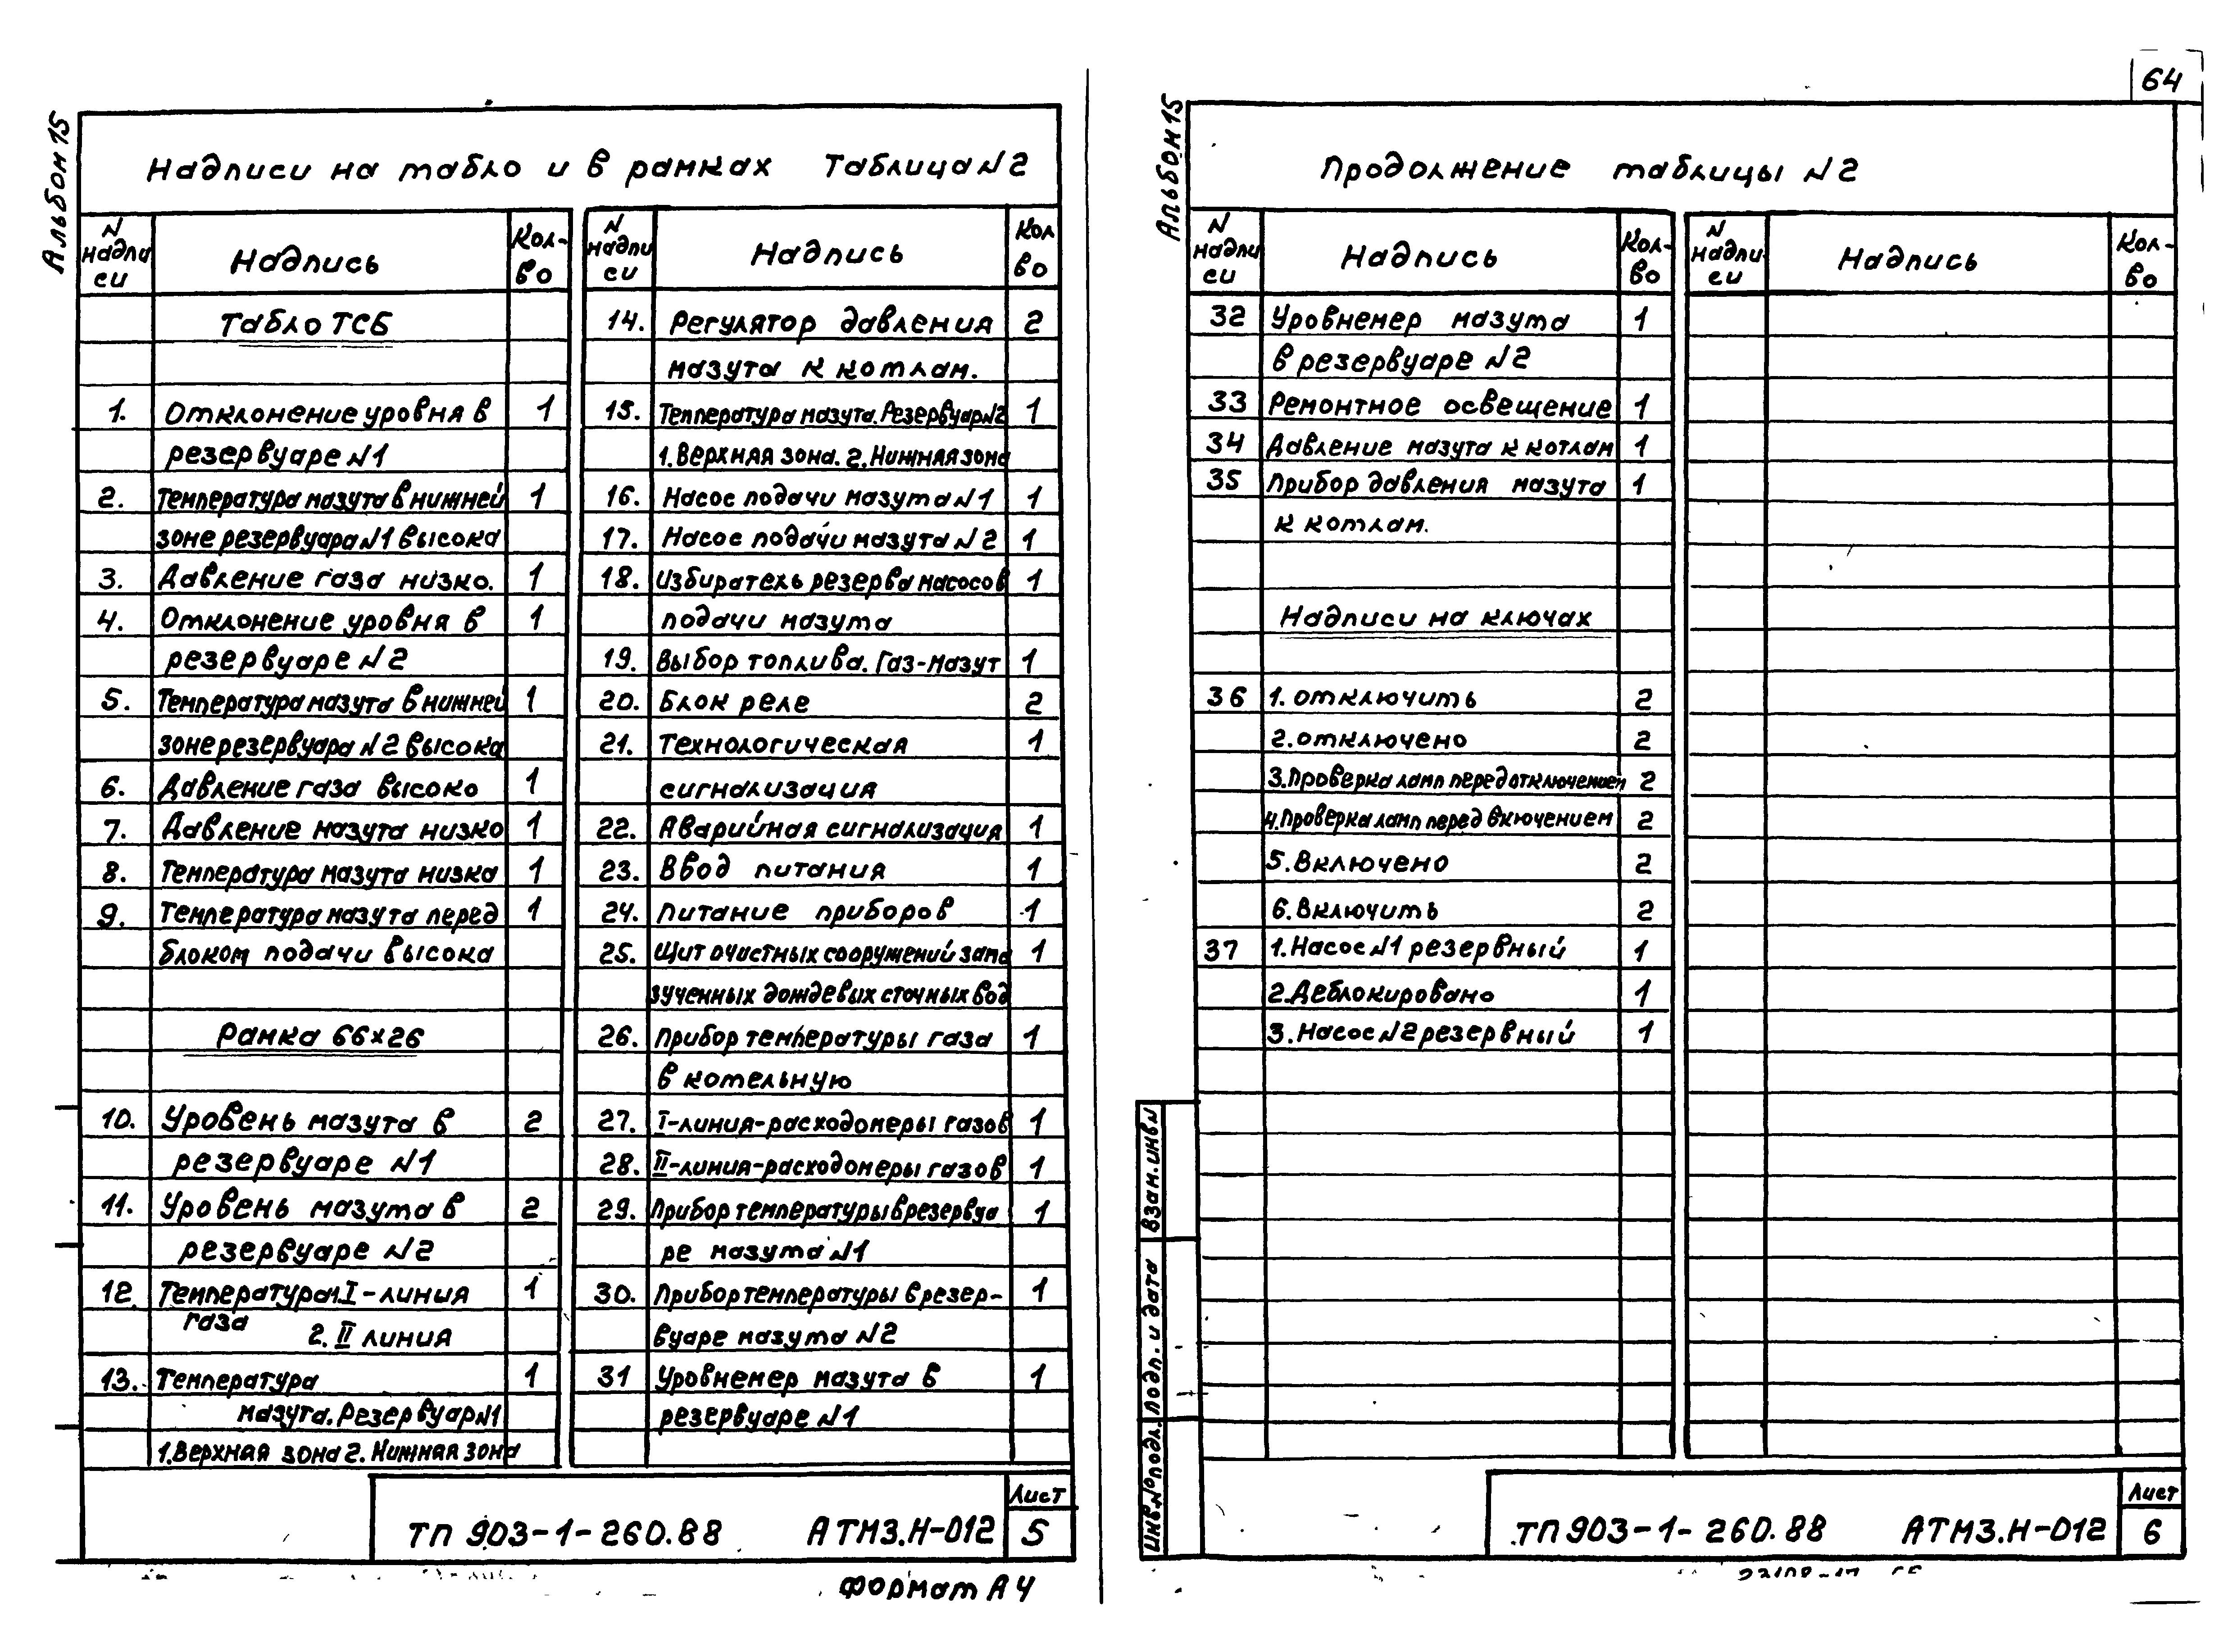 64
Альбом 15
Надписи на табло и в рамках Таблица N2
N надпи си
Надпись
Кол-во
N надпи си
Надпись
Кол во
Табло ТСБ
1. Отклонение уровня в 1
резервуаре N1
2. Температура мазута в нижней 1
зоне резервуара N1 высока
3. Давление газа низко. 1
4. Отклонение уровня в 1
резервуаре N2
5. Температура мазута в нижней 1
зоне резервуара N2 высока
6. Давление газа высоко 1
7. Давление мазута низко 1
8. Температура мазута низка 1
9. Температура мазута перед 1
блоком подачи высока
Рамка 66×26
10. Уровень мазута в 2
резервуаре N1
11. Уровень мазута в 2
резервуаре N2
12. Температура 1. I-линия 1
газа 2. II линия
13. Температура 1
мазута. Резервуар N1
1. Верхная зона 2. Нижная зона
14. Регулятор давления 2
мазута к котлам.
15. Температура мазута. Резервуар N2 1
1. Верхняя зона. 2. Нижняя зона
16. Насос подачи мазута N1 1
17. Насос подачи мазута N2 1
18. Избиратель резерва насосов 1
подачи мазута
19. Выбор топлива. Газ-мазут 1
20. Блок реле 2
21. Технологическая 1
сигнализация
22. Аварийная сигнализация 1
23. Ввод питания 1
24. Питание приборов 1
25. Щит очистных сооружений зама 1
зученных дождевых сточных вод
26. Прибор температуры газа 1
в котельную
27. I-линия-расходомеры газов 1
28. II-линия-расходомеры газов 1
29. Прибор температуры в резервуа 1
ре мазута N1
30. Прибор температуры в резер- 1
вуаре мазута N2
31 Уровнемер мазута в 1
резервуаре N1
ТП 903-1-260.88 АТМ3.Н-012
Лист
5
Формат А4
Альбом 15
Продолжение таблицы N2
N надпи си
Надпись
Кол-во
N надпи си
Надпись
Кол-во
32 Уровнемер мазута 1
в резервуаре N2
33 Ремонтное освещение 1
34 Давление мазута к котлам 1
35 Прибор давления мазута 1
к котлам.
Надписи на ключах
36 1. отключить 2
2. отключено 2
3. Проверка ламп перед отключением 2
4. Проверка ламп перед включением 2
5. Включено 2
6. Включить 2
37 1. Насос N1 резервный 1
2. Деблокировано 1
3. Насос N2 резервный 1
Инв.№ подл. Подп. и дата Взам. инв N
ТП 903-1-260.88 АТМ3.Н-012
Лист
6